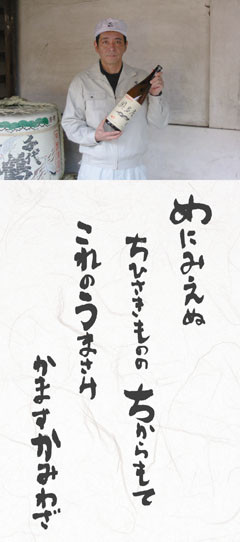 千代鶴
めにみえぬ
ちひさきものの ちからもて
これのうまさけ
かますかみわざ